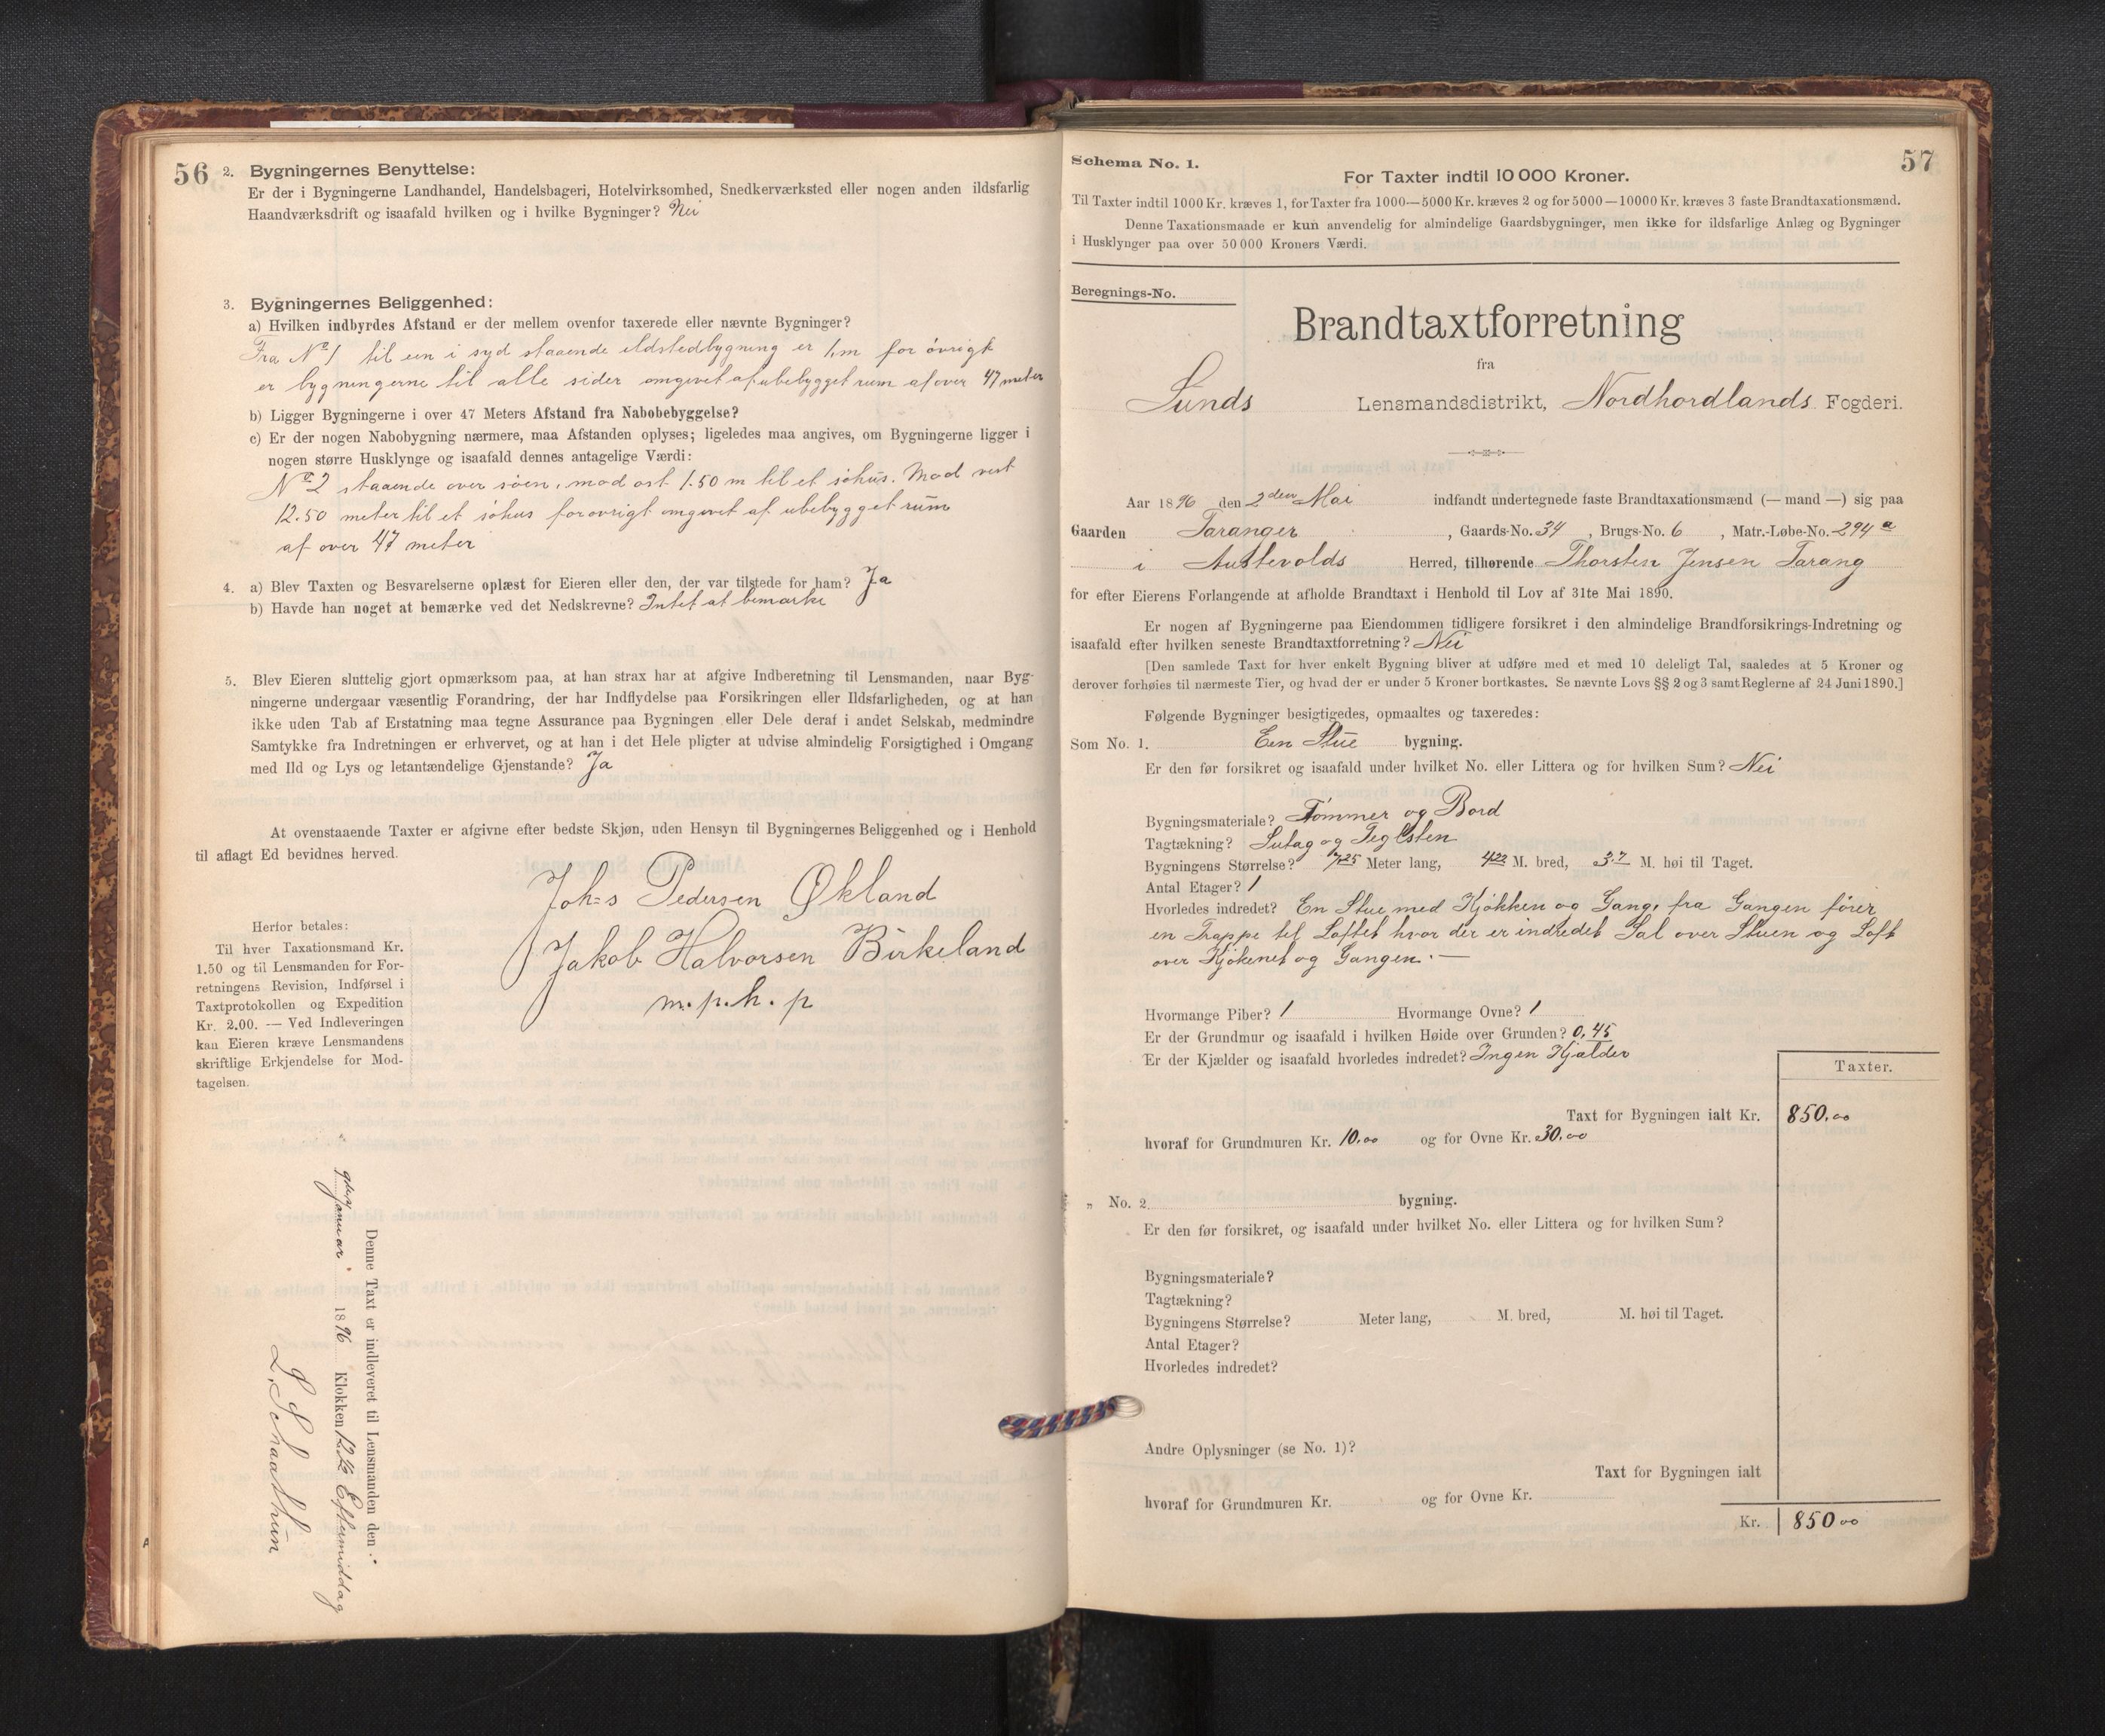 56
2. Bygningernes Benyttelse:
Er der i Bygningerne Landhandel, Handelsbageri, Hotelvirksomhed, Snedkerværksted eller nogen anden ildsfarlig
Haandværksdrift og isaafald hvilken og i hvilke Bygninger? Nei
3. Bygningernes Beliggenhed:
a) Hvilken indbyrdes Afstand er der mellem ovenfor taxerede eller nævnte Bygninger?
Fra No 1 til een i syd staaende ildstedbygning er 1,m for övrigt
er bygningerne til alle sider omgivet af ubebygget rum af over 47 meter
b) Ligger Bygningerne i over 47 Meters Afstand fra Nabobebyggelse?
c) Er der nogen Nabobygning nærmere, maa Afstanden oplyses; ligeledes maa angives, om Bygningerne ligger i
nogen større Husklynge og isaafald dennes antagelige Værdi:
No 2 staaende over söen, mod ost 1.50 m til et söhus. Mod vest
12.50 meter til et söhus forovrigt omgivet af ubebygget rum
af over 47 meter
4. a) Blev Taxten og Besvarelserne oplæst for Eieren eller den, der var tilstede for ham? Ja
b) Havde han noget at bemærke ved det Nedskrevne? Intet at bemærke
5. Blev Eieren sluttelig gjort opmærksom paa, at han strax har at afgive Indberetning til Lensmanden, naar Byg-
ningerne undergaar væsentlig Forandring, der har Indflydelse paa Forsikringen eller Ildsfarligheden, og at han
ikke uden Tab af Erstatning maa tegne Assurance paa Bygningen eller Dele deraf i andet Selskab, medmindre
Samtykke fra Indretningen er erhvervet, og at han i det Hele pligter at udvise almindelig Forsigtighed i Omgang
med Ild og Lys og letantændelige Gjenstande? Ja
At ovenstaaende Taxter er afgivne efter bedste Skjøn, uden Hensyn til Bygningernes Beliggenhed og i Henhold
til aflagt Ed bevidnes herved.
Johs Pedersen Økland
Jakob Halvorsen Birkeland
m.p.h.p
Herfor betales:
Til hver Taxationsmand Kr.
1.50 og til Lensmanden for For-
retningens Revision, Indførsel i
Taxtprotokollen og Expedition
Kr. 2.00. — Ved Indleveringen
kan Eieren kræve Lensmandens
skriftlige Erkjendelse for Mod-
tagelsen.
Denne Taxt er indleveret til Lensmanden den
Januar 1896 Klokken 12½ Eftermiddag
57
Schema No. 1.
For Taxter indtil 10 000 Kroner.
Til Taxter indtil 1000 Kr. kræves 1, for Taxter fra 1000—5000 Kr. kræves 2 og for 5000—10000 Kr. kræves 3 faste Brandtaxationsmænd.
Denne Taxationsmaade er kun anvendelig for almindelige Gaardsbygninger, men ikke for ildsfarlige Anlæg og Bygninger
i Husklynger paa over 50 000 Kroners Værdi.
Beregnings-No.
Brandtaxtforretning
fra
Sunds Lensmandsdistrikt, Nordhordlands Fogderi.
Aar 1896 den 2den Mai indfandt undertegnede faste Brandtaxationsmænd (— mand —) sig paa
Gaarden Taranger, Gaards-No. 34, Brugs-No. 6, Matr.-Løbe-No. 294 a
i Austevolds Herred, tilhørende Thorsten Jensen Tarang
for efter Eierens Forlangende at afholde Brandtaxt i Henhold til Lov af 31te Mai 1890.
Er nogen af Bygningerne paa Eiendommen tidligere forsikret i den almindelige Brandforsikrings-Indretning og
isaafald efter hvilken seneste Brandtaxtforretning? Nei
[Den samlede Taxt for hver enkelt Bygning bliver at udføre med et med 10 deleligt Tal, saaledes at 5 Kroner og
derover forhøies til nærmeste Tier, og hvad der er under 5 Kroner bortkastes. Se nævnte Lovs §§ 2 og 3 samt Reglerne af 24 Juni 1890.]
Følgende Bygninger besigtigedes, opmaaltes og taxeredes:
Som No. 1. Een Stue bygning.
Er den før forsikret og isaafald under hvilket No. eller Littera og for hvilken Sum? Nei
Bygningsmateriale? Tømmer og Bord
Tagtækning? Sutag og Teglsten
Bygningens Størrelse? 7,25 Meter lang, 4,22 M. bred, 3.7 M. høi til Taget.
Antal Etager? 1
Hvorledes indredet? En Stue med Kjøkken og Gang, fra Gangen fører
en Trappe til Loftet hvor der er indredet Sal over Stuen og Loft
over Kjøkenet og Gangen. —
Hvormange Piber? 1 Hvormange Ovne? 1
Er der Grundmur og isaafald i hvilken Høide over Grunden? 0,45
Er der Kjælder og isaafald hvorledes indredet? Ingen Kjælder
Taxter.
Taxt for Bygningen ialt Kr. 850.00
hvoraf for Grundmuren Kr. 10.00 og for Ovne Kr. 30.00
„ No. 2 bygning.
Er den før forsikret, og isaafald under hvilket No. eller Littera og for hvilken Sum?
Bygningsmateriale?
Tagtækning?
Bygningens Størrelse? Meter lang, M. bred, M. høi til Taget.
Antal Etager?
Hvorledes indredet?
Andre Oplysninger (se No. 1)?
Taxt for Bygningen ialt
hvoraf for Grundmuren Kr. og for Ovne Kr.
Kr. 850 00